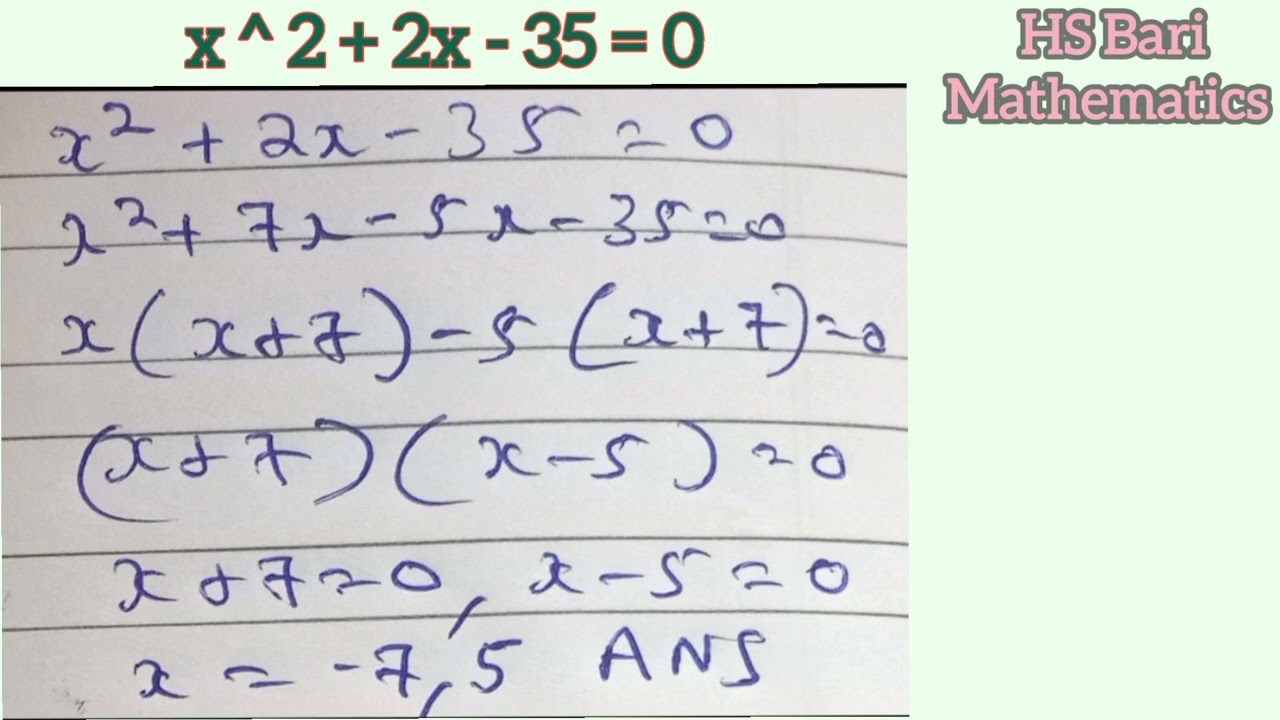 x ^ 2 + 2x - 35 = 0
HS Bari
Mathematics
x² + 2x - 35 = 0
x² + 7x - 5x - 35 = 0
x(x+7) - 5(x+7) = 0
(x+7)(x-5) = 0
x+7=0, x-5=0
x = -7, 5 ANS